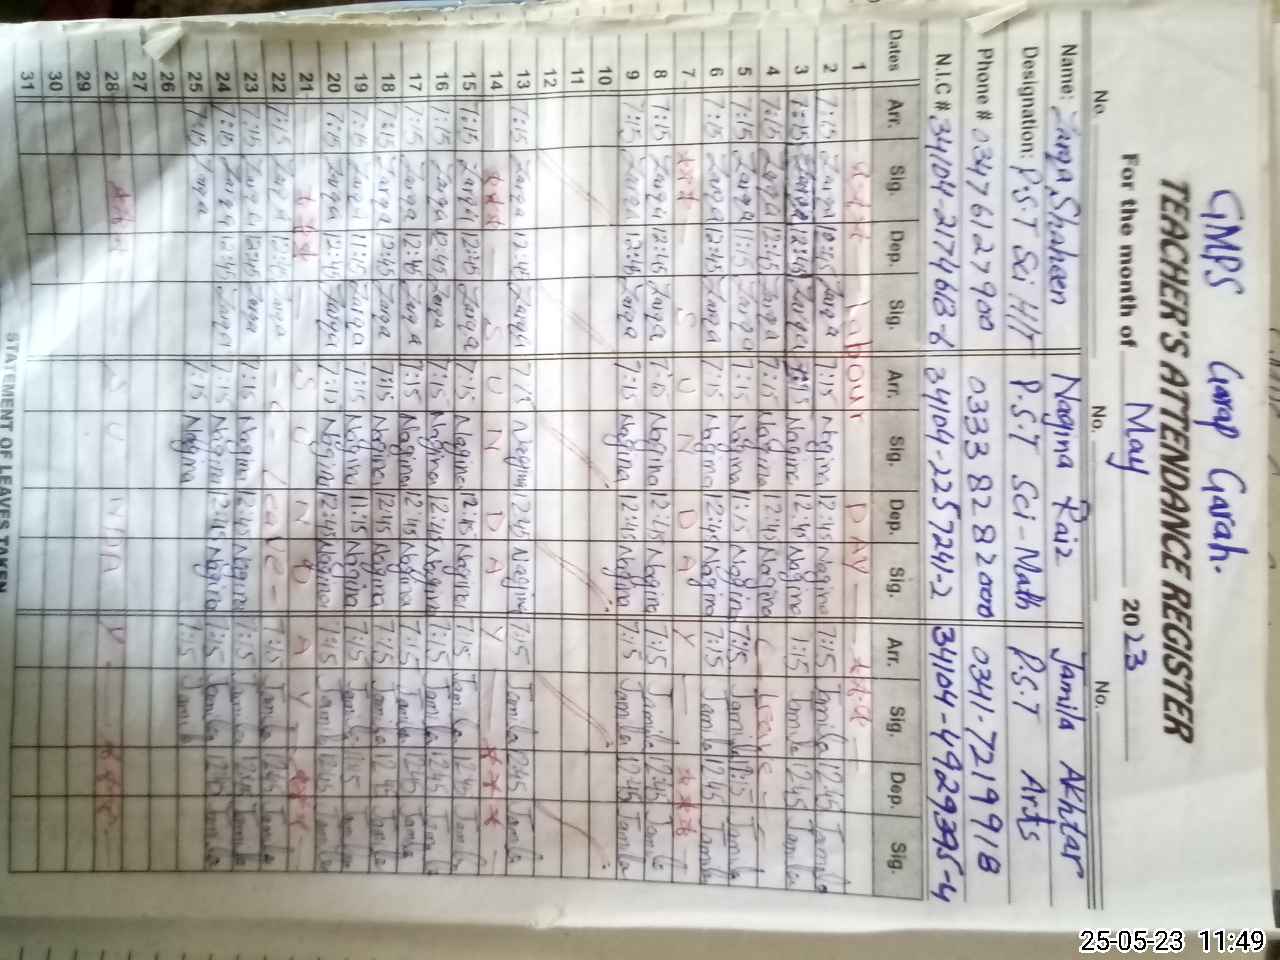 GMPS Garap Garah.
TEACHER'S ATTENDANCE REGISTER
For the month of May 2023
No. No. No.
Name: Zarqa Shaheen Nagina Raiz Jamila Akhtar
Designation: P.S.T Sci H/T P.S.T Sci-Math P.S.T Arts
Phone # 03476127900 03338282000 0341-7219918
N.I.C # 34104-2174663-6 34104-2257241-2
Dates Arr. Sig. Dep. Sig. Arr. Sig. Dep. Sig. Arr. Sig. Dep. Sig.
1 Labour DAY
2 7:15 Zarqa 12:45 Zarqa 7:15 Nagina 12:45 Nagina 7:15 Jamila 12:45 Jamila
3 7:15 Zarqa 12:45 Zarqa 7:15 Nagina 12:45 Nagina 7:15 Jamila 12:45 Jamila
4 7:15 Zarqa 12:45 Zarqa 7:15 Nagina 12:45 Nagina C Leave
5 7:15 Zarqa 11:15 Zarqa 7:15 Nagina 11:15 Nagina 7:15 Jamila 11:15 Jamila
6 7:15 Zarqa 12:45 Zarqa 7:15 Nagina 12:45 Nagina 7:15 Jamila 12:45 Jamila
7 *** S U N D A Y ***
8 7:15 Zarqa 12:45 Zarqa 7:15 Nagina 12:45 Nagina 7:15 Jamila 12:45 Jamila
9 7:15 Zarqa 12:45 Zarqa 7:15 Nagina 12:45 Nagina 7:15 Jamila 12:45 Jamila
10
11
12
13 7:15 Zarqa 12:45 Zarqa 7:15 Nagina 12:45 Nagina 7:15 Jamila 12:45 Jamila
14 *** S U N D A Y ***
15 7:15 Zarqa 12:45 Zarqa 7:15 Nagina 12:45 Nagina 7:15 Jamila 12:45 Jamila
16 7:15 Zarqa 12:45 Zarqa 7:15 Nagina 12:45 Nagina 7:15 Jamila 12:45 Jamila
17 7:15 Zarqa 12:45 Zarqa 7:15 Nagina 12:45 Nagina 7:15 Jamila 12:45 Jamila
18 7:15 Zarqa 12:45 Zarqa 7:15 Nagina 12:45 Nagina 7:15 Jamila 12:45 Jamila
19 7:15 Zarqa 11:15 Zarqa 7:15 Nagina 11:15 Nagina 7:15 Jamila 11:15 Jamila
20 7:15 Zarqa 12:45 Zarqa 7:15 Nagina 12:45 Nagina 7:15 Jamila 12:45 Jamila
21 *** S U N D A Y ***
22 7:15 Zarqa 12:45 Zarqa - C Leave - 7:15 Jamila 12:45 Jamila
23 7:15 Zarqa 12:45 Zarqa 7:15 Nagina 12:45 Nagina 7:15 Jamila 12:45 Jamila
24 7:15 Zarqa 12:45 Zarqa 7:15 Nagina 12:45 Nagina 7:15 Jamila 12:45 Jamila
25 7:15 Zarqa 7:15 Nagina 7:15 Jamila
26
27
28 *** S U N D A Y ***
29
30
31
STATEMENT OF LEAVES TAKEN
25-05-23 11:49